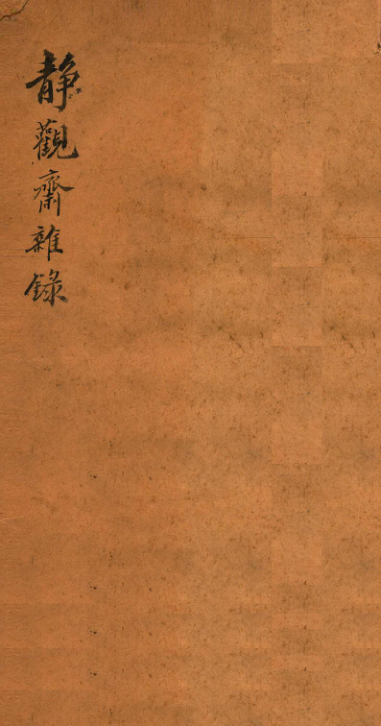 靜觀齋雜錄